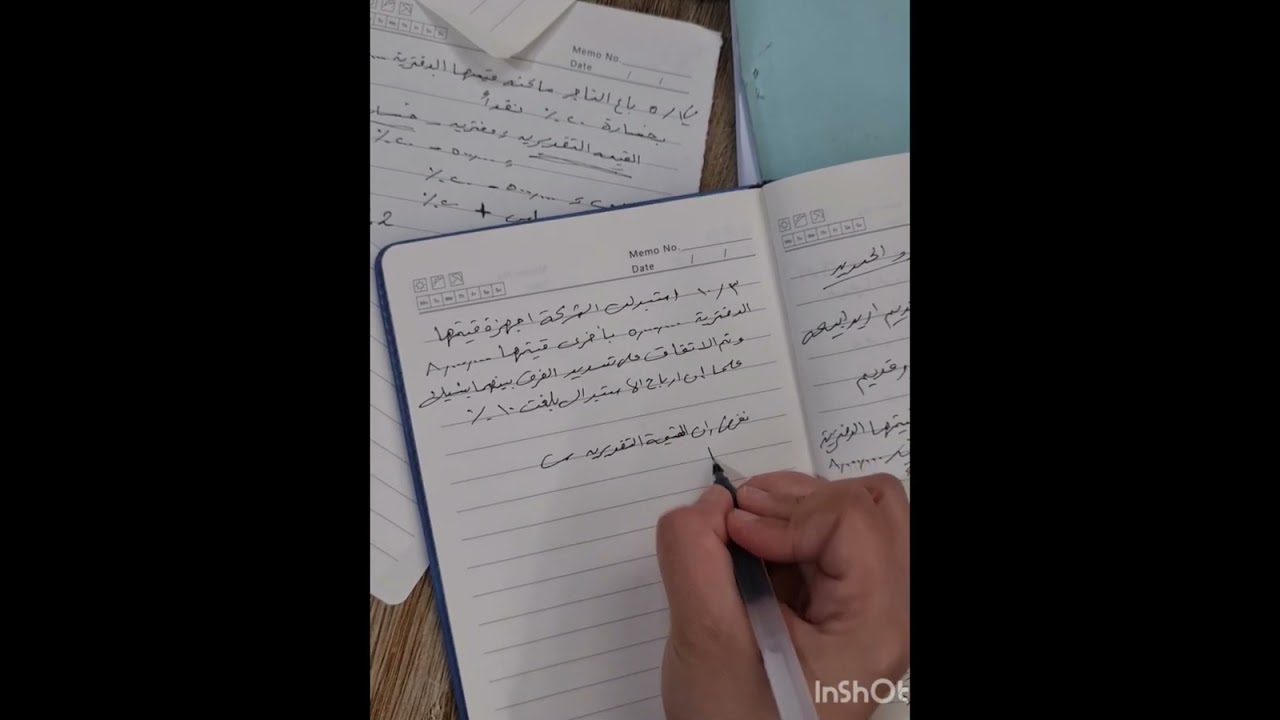 Memo No.
Date / /
باع التاجر ماكنه قيمتها الدفترية
بخسارة ٢٠٪ نقداً
القيمه التقديريه = دفتريه - خسارة
س = ٥٠٠,٠٠٠ - ٢٠٪ س
س + ٢٠٪
Memo No.
Date / /
١٠/٣ استبدلت الشركة اجهزة قيمتها
الدفترية ٥٠٠,٠٠٠ بأخرى قيمتها ٨٠٠,٠٠٠
وتم الاتفاق على تسديد الفرق بينهما بشيك
علما ان ارباح الاستبدال بلغت ١٠٪
نفرض ان القيمة التقديريه س
و الجديد
قديم اريد ابيعه
وقديم
قيمتها الدفترية
٨٠٠,٠٠٠
InShOt